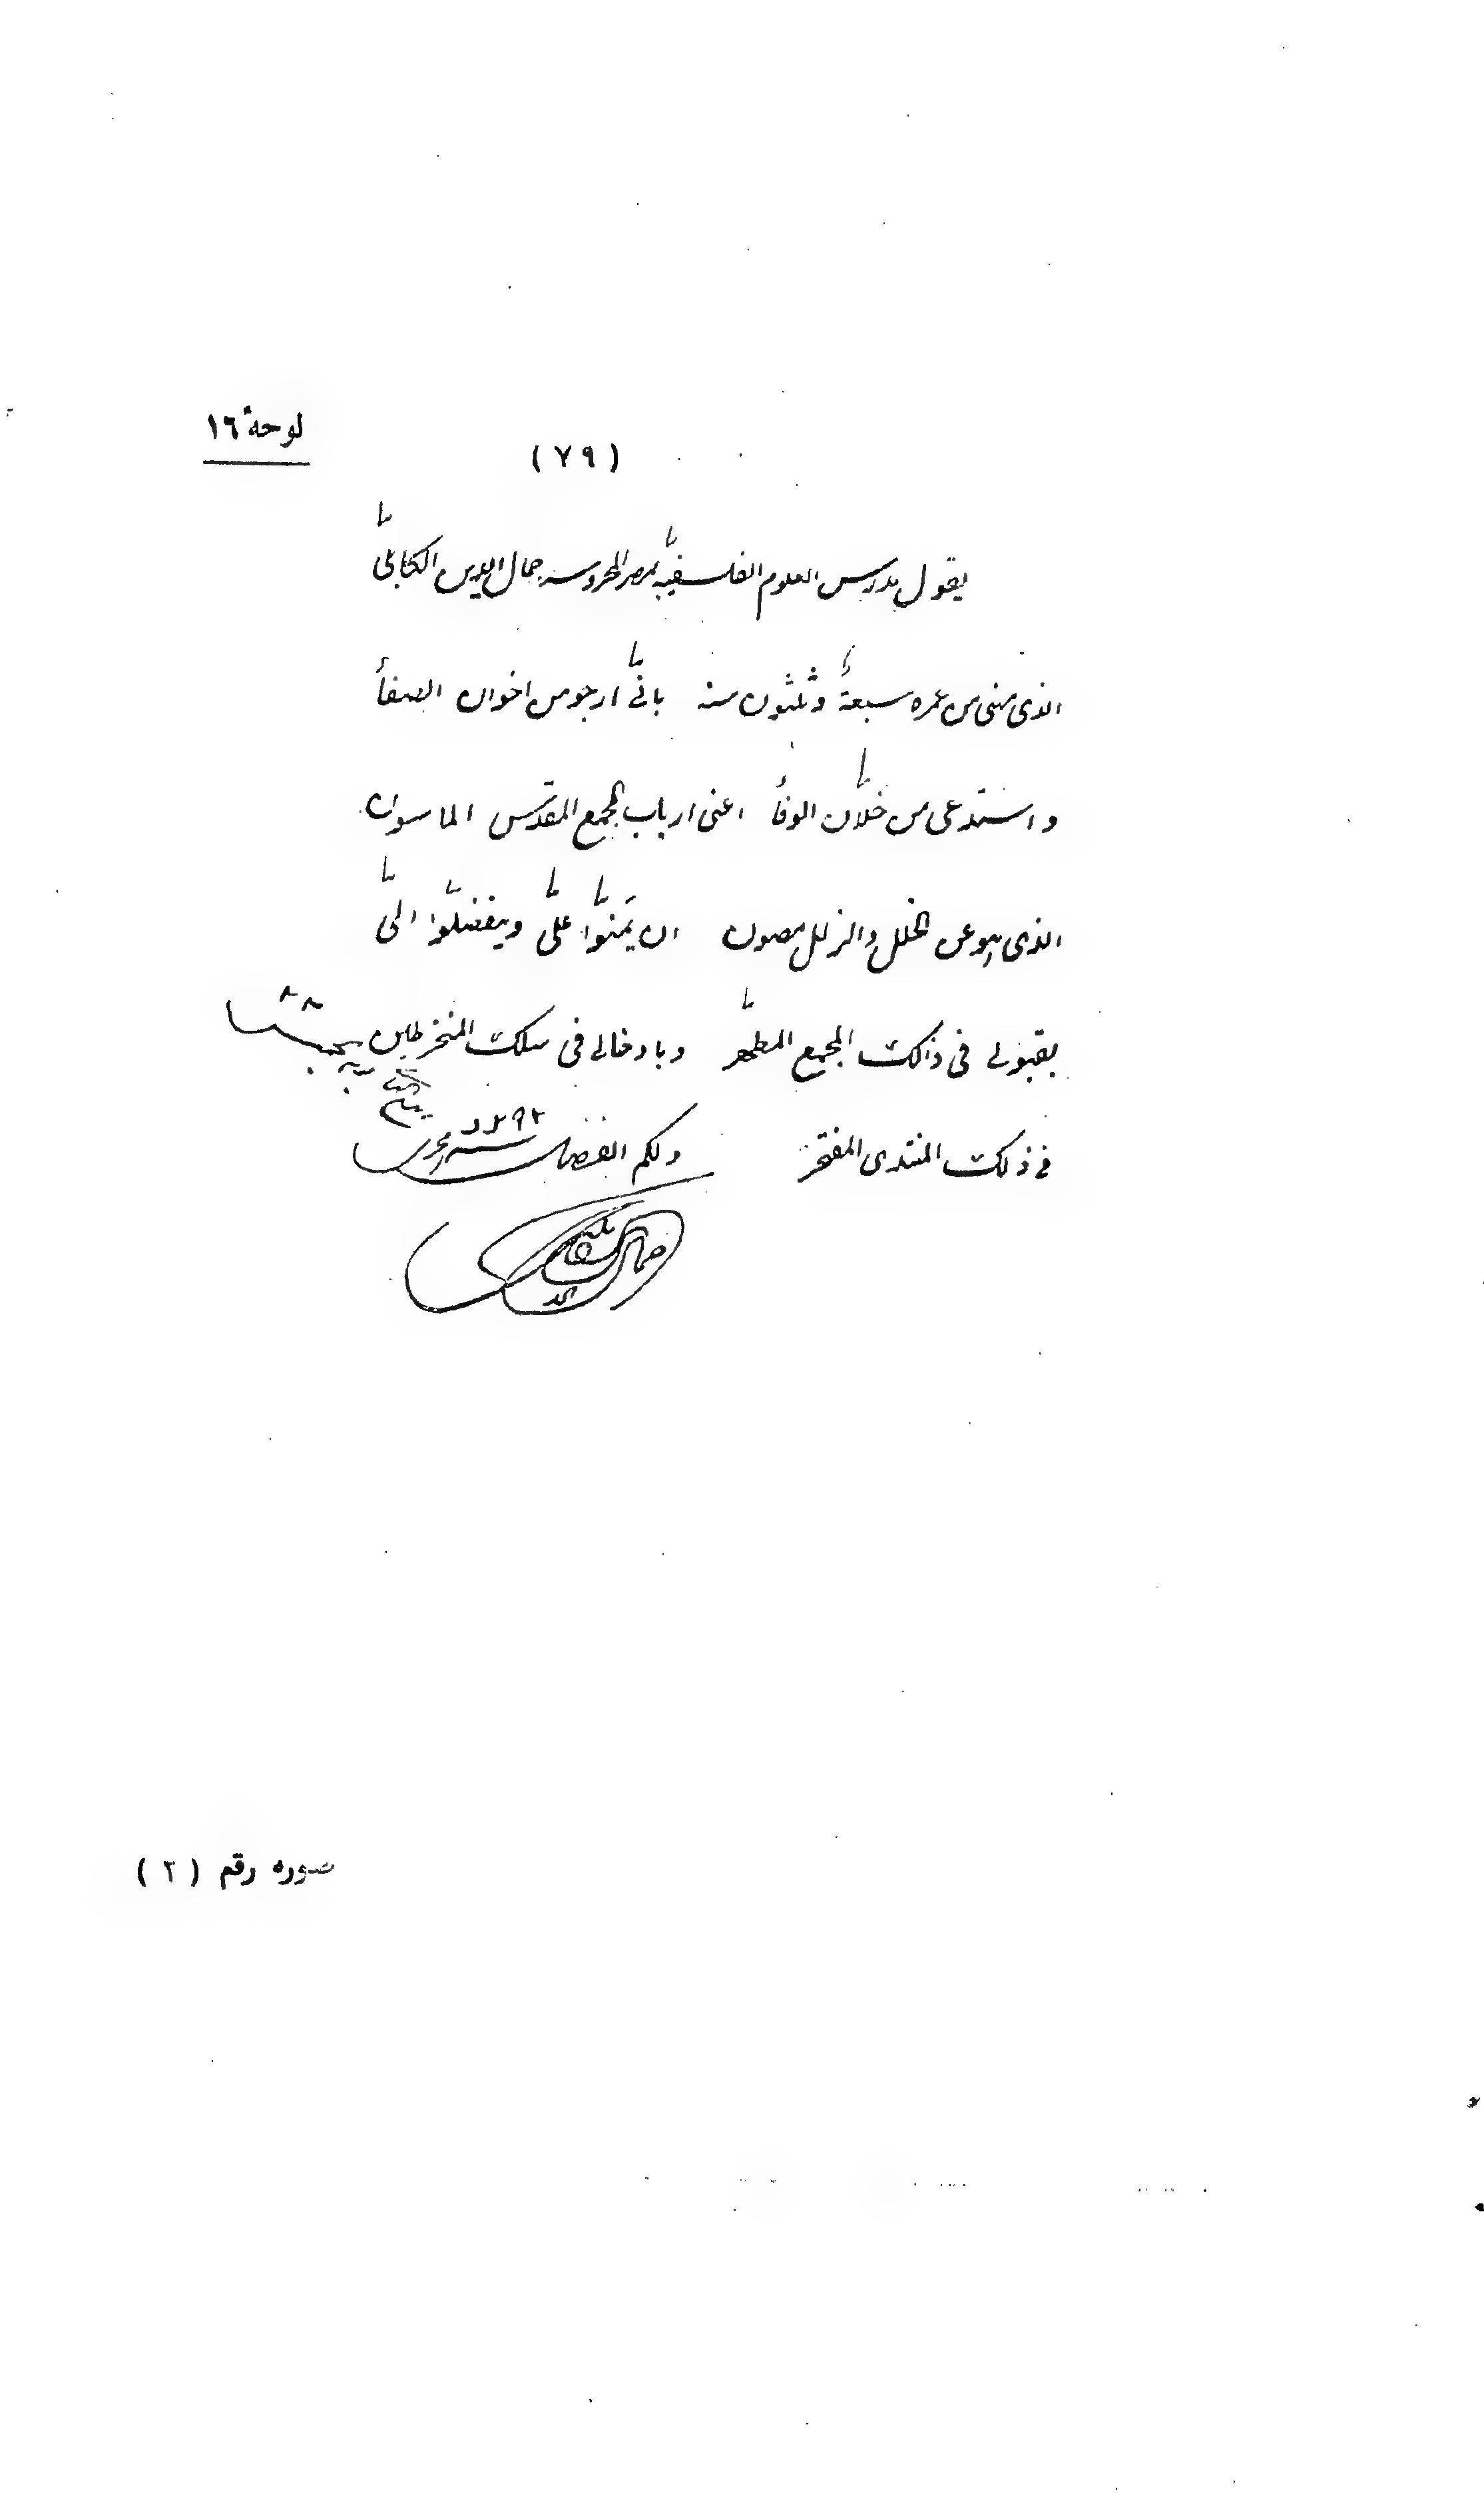 لوحة ١٦
(٧٩)
يقول مدرس العلوم الفلسفيّه بمصر المحروسه جمال الدين الكابلىّ
الذى مضى من عمره سبعةٌ وثلثون سنه بانّى ارجو من اخوان الصفأ
و استدعى من خلّان الوفأ اعنى ارباب المجمع المقدّس الماسون
الذى هو عن الخلل والزلل مصون ان يَمنّوا علىّ ويتفضّلوا الىّ
بقبولى فى ذالك المجمع المطهّر و بادخالى فى سلك المنخرطين
فى ذلك المنتدى المفتخر ولكم الفضل
١٢٩٢
جمال الدين
صوره رقم (٢)